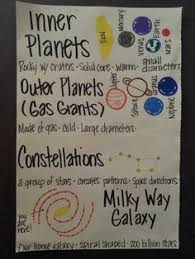 Inner
Planets
SUN
Mercury
Venus
Earth
Mars
Rocky w/craters - Solid Core - Warm - Small diameters
Outer Planets
(Gas Giants)
Jupiter
Saturn
Uranus
Neptune
Made of gas - Cold - Large diameters
Constellations
a group of stars - creates patterns - space directions
Milky Way
Galaxy
you are here!
Our home galaxy - spiral shaped - 200 billion stars